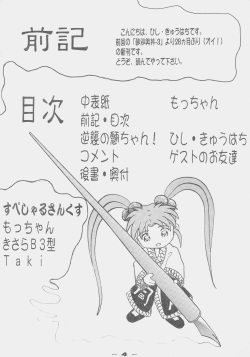 前記
こんにちは、ひし・きゅうはちです。
の新刊です。
どうぞ、読んでやって下さい。
目次
中表紙 もっちゃん
前記・目次
逆襲の顔ちゃん! ひし・きゅうはち
コメント ゲストのお友達
後書・奥付
すぺしゃるさんくす
もっちゃん
きさらB3型
Taki
- 4 -